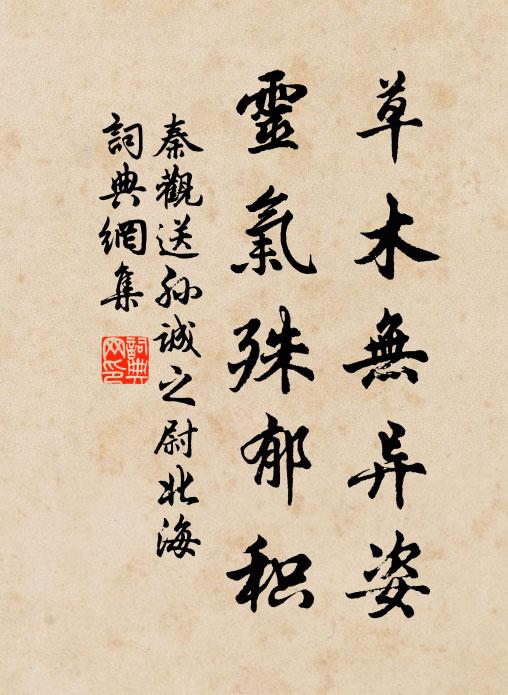 草木無异姿
靈氣殊郁积
秦觀送孙诚之尉北海
詞典網集
詞典网印